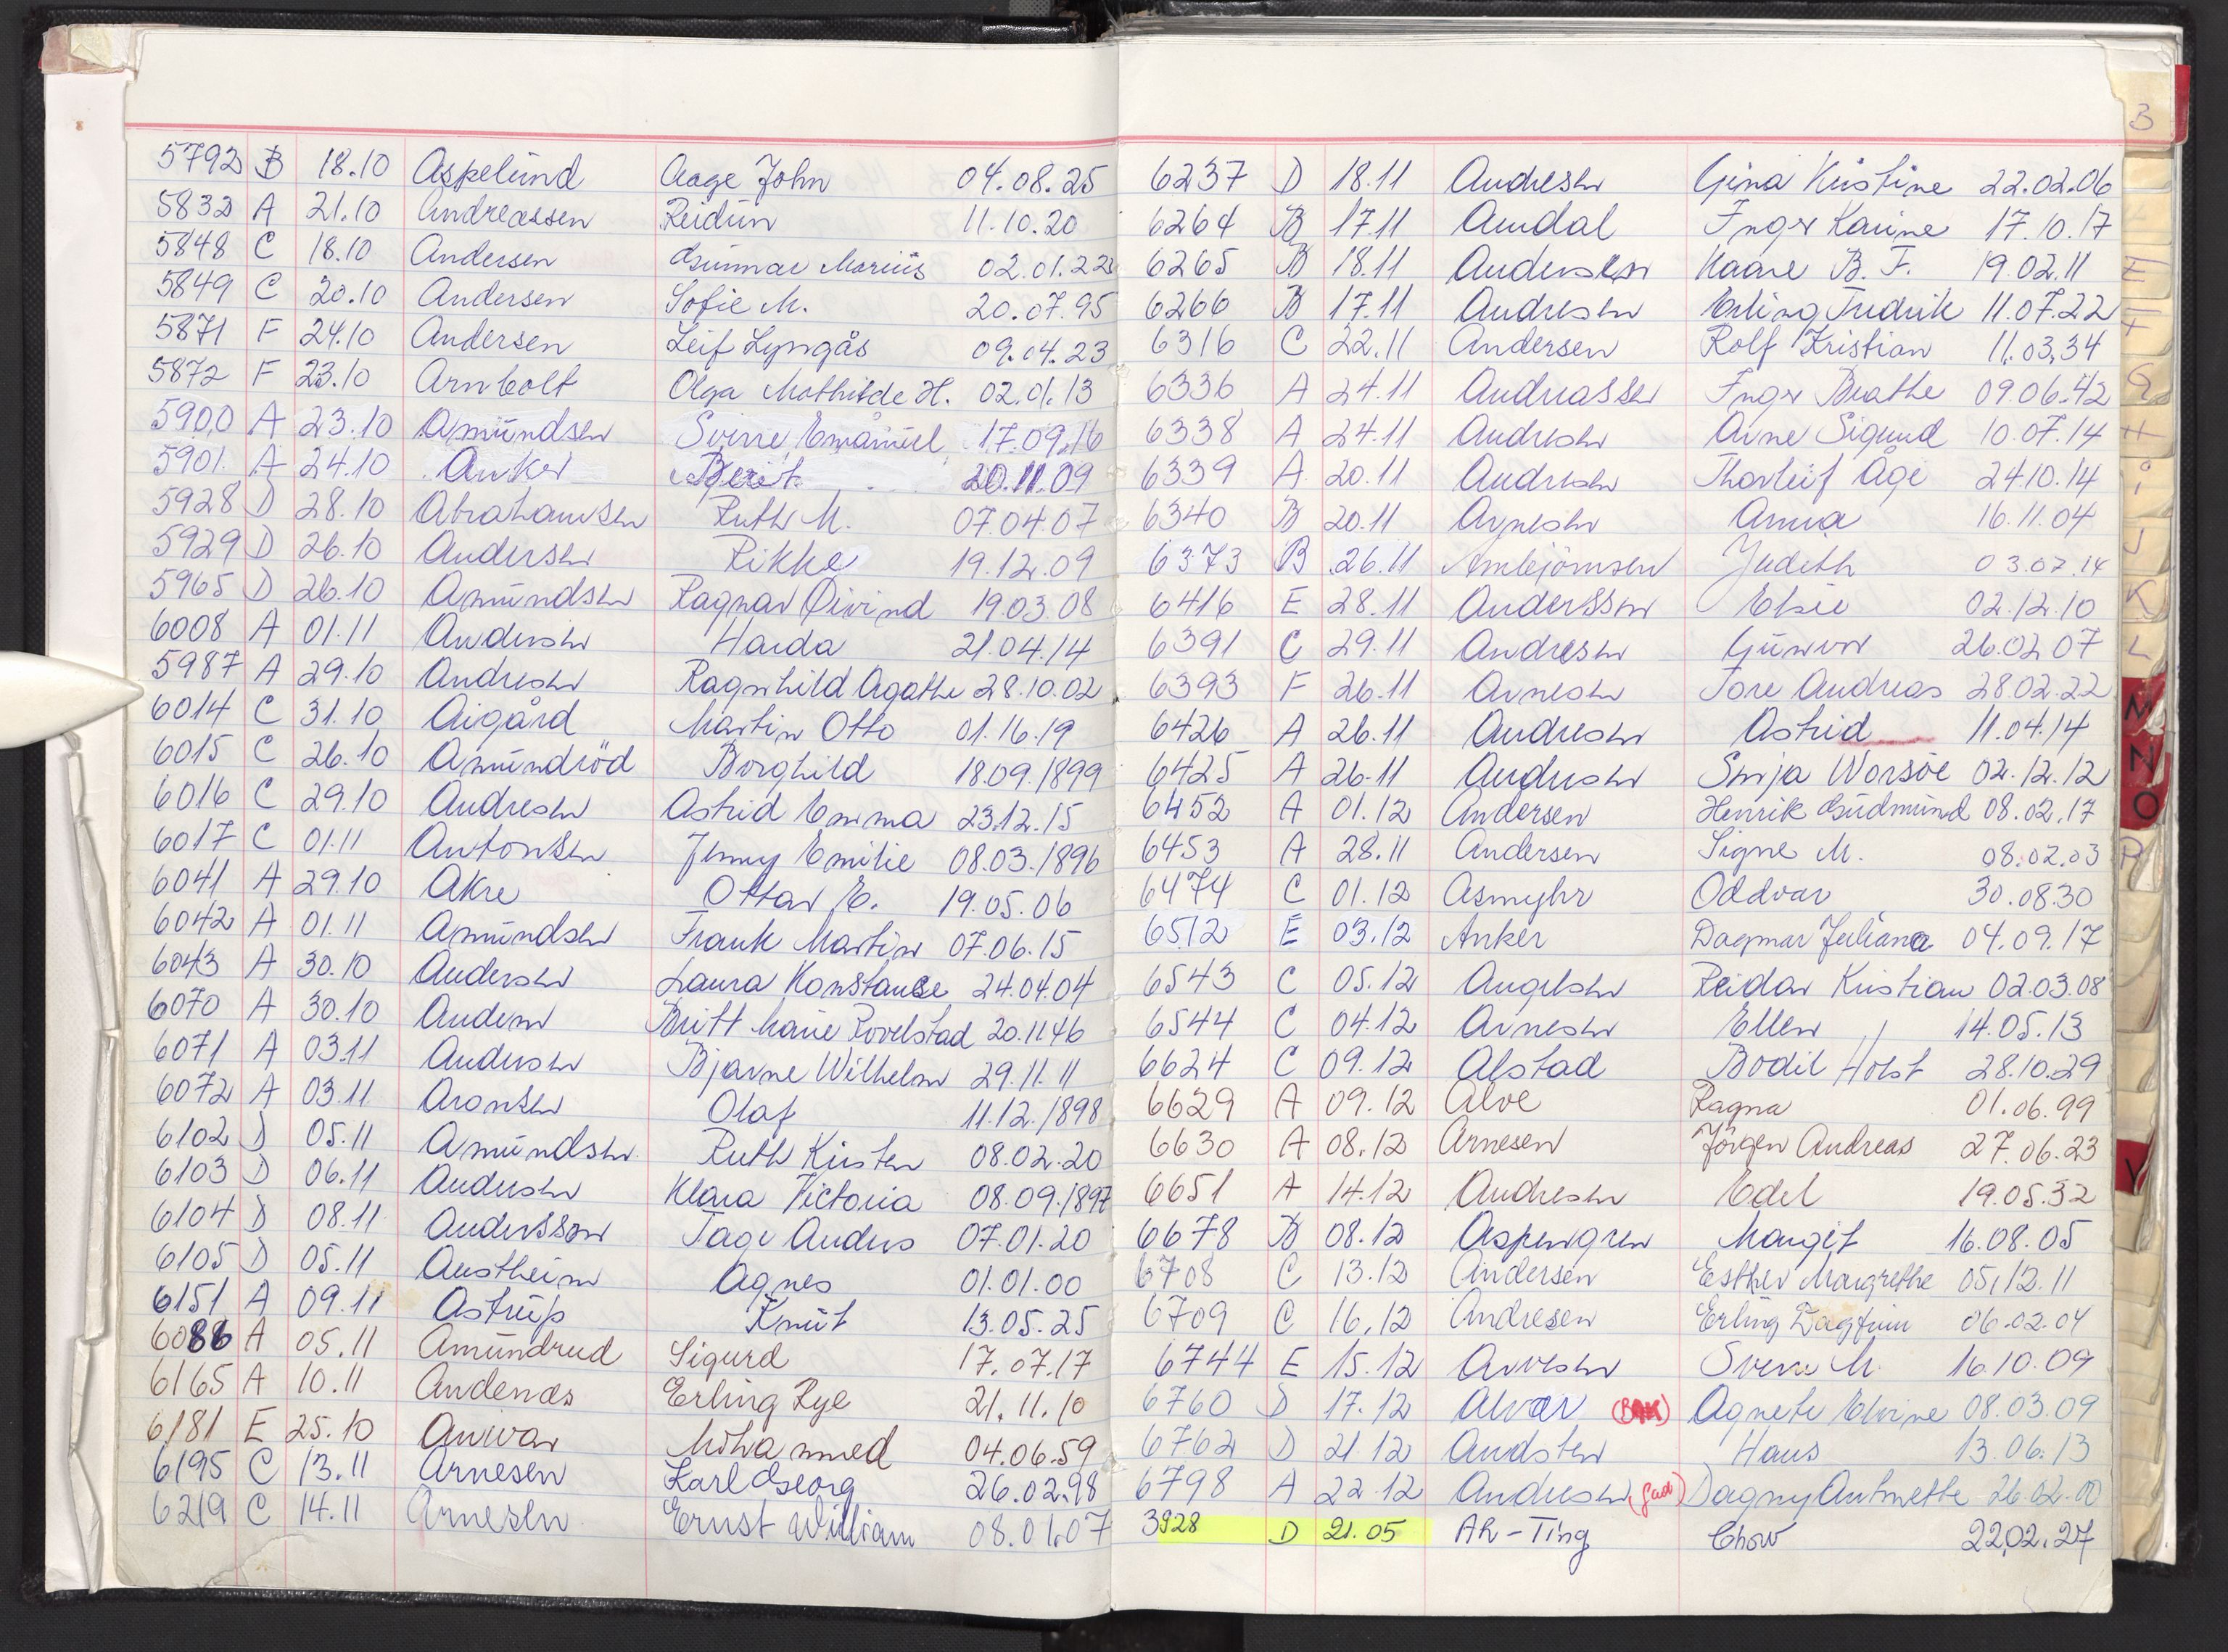 5792 B 18.10 Aspelund Aage John 04.08.25
5832 A 21.10 Andreassen Reidun 11.10.20
5848 C 18.10 Andersen Gunnar Marius 02.01.22
5849 C 20.10 Andersen Sofie M. 20.07.95
5871 F 24.10 Andersen Leif Lyngås 09.04.23
5872 F 23.10 Arnbolt Olga Mathilde H. 02.01.13
5900 A 23.10 Amundsen Sverre Emanuel 17.09.16
5901 A 24.10 Anker Berit 20.11.09
5928 D 28.10 Abrahamsen Ruth M. 07.04.07
5929 D 26.10 Andersen Rikke 19.12.09
5965 D 26.10 Amundsen Ragnar Øivind 19.03.08
6008 A 01.11 Andersen Harda 21.04.14
5987 A 29.10 Andresen Ragnhild Agathe 28.10.02
6014 C 31.10 Aigård Martin Otto 01.16.19
6015 C 26.10 Amundröd Borghild 18.09.1899
6016 C 29.10 Andresen Astrid Emma 23.12.15
6017 C 01.11 Antonsen Jenny Emilie 08.03.1896
6041 A 29.10 Akre Ottar E. 19.05.06
6042 A 01.11 Amundsen Frank Martin 07.06.15
6043 A 30.10 Andersen Laura Konstanse 24.04.04
6070 A 30.10 Andem Britt Marie Rovelstad 20.11.46
6071 A 03.11 Andersen Bjarne Wilhelm 29.11.11
6072 A 03.11 Aronsen Olaf 11.12.1898
6102 D 05.11 Amundsen Ruth Kirsten 08.02.20
6103 D 06.11 Andersen Klara Victoria 08.09.1897
6104 D 08.11 Andersson Tage Anders 07.01.20
6105 D 05.11 Austheim Agnes 01.01.00
6151 A 09.11 Astrup Knut 13.05.25
6086 A 05.11 Amundrud Sigurd 17.07.17
6165 A 10.11 Andenæs Erling Rye 21.11.10
6181 E 25.10 Anwar Mohammed 04.06.59
6195 C 13.11 Arnesen Karl Georg 26.02.98
6219 C 14.11 Arnesen Ernst William 08.01.07
6237 D 18.11 Andresen Gina Kristine 22.02.06
6264 B 17.11 Amdal Inger Karine 17.10.17
6265 B 18.11 Andersen Kaare B. F. 19.02.11
6266 B 17.11 Andresen Erling Fredrik 11.07.22
6316 C 22.11 Andersen Rolf Kristian 11.03.34
6336 A 24.11 Andreassen Inger Beathe 09.06.42
6338 A 24.11 Andresen Arne Sigurd 10.07.14
6339 A 20.11 Andresen Thorleif Åge 24.10.14
6340 B 20.11 Arnesen Anna 16.11.04
6373 B 26.11 Arnbjörnsen Judith 03.07.14
6416 E 28.11 Andersson Elsie 02.12.10
6391 C 29.11 Andresen Gunvor 26.02.07
6393 F 26.11 Arnesen Tore Andreas 28.02.22
6426 A 26.11 Andresen Astrid 11.04.14
6425 A 26.11 Andresen Sonja Worsöe 02.12.12
6452 A 01.12 Andersen Henrik Gudmund 08.02.17
6453 A 28.11 Andersen Signe M. 08.02.03
6474 C 01.12 Asmyhr Oddvar 30.08.30
6512 E 03.12 Anker Dagmar Juliana 04.09.17
6543 C 05.12 Angelsen Reidar Kristian 02.03.08
6544 C 04.12 Arnesen Ellen 14.05.13
6624 C 09.12 Alstad Bodil Holst 28.10.29
6629 A 09.12 Alve Ragna 01.06.99
6630 A 08.12 Arnesen Jörgen Andreas 27.06.23
6651 A 14.12 Andresen Edel 19.05.32
6678 B 08.12 Aspengren Margit 16.08.05
6708 C 13.12 Andersen Esther Margrethe 05.12.11
6709 C 16.12 Andresen Erling Dagfinn 06.02.04
6744 E 15.12 Arnesen Sverre M. 16.10.09
6760 D 17.12 Alver Agnete Elvine 08.03.09
6762 D 21.12 Andsten Hans 13.06.13
6798 A 22.12 Andresen Dagny Antonette 26.02.00
3928 D 21.05 Ah-Ting Chow 22.02.27
3
E
F
G
H
i
J
K
L
M
N
O
P
V